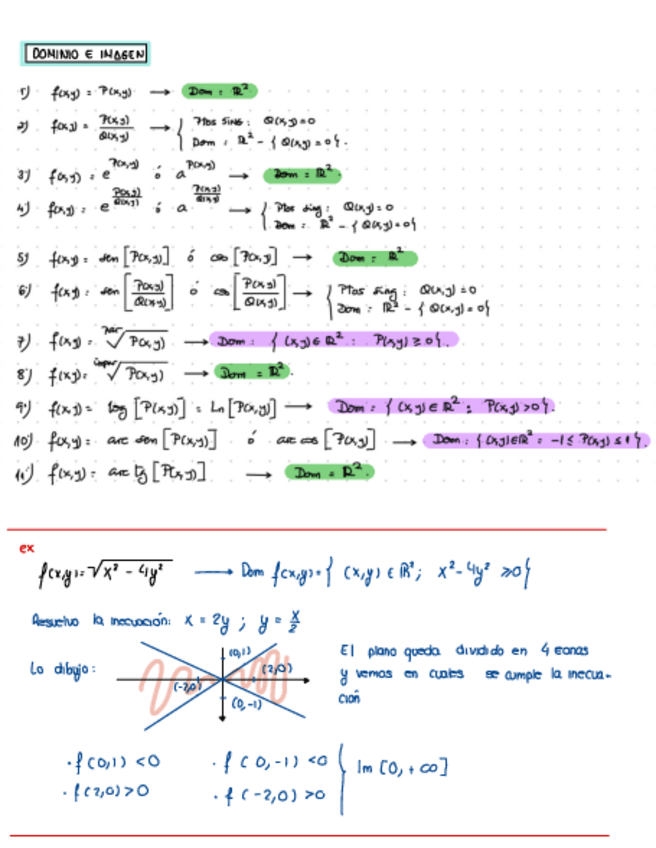 DOMINIO E IMAGEN
1) f(x,y) = P(x,y) → Dom: ℝ²
2) f(x,y) = P(x,y)/Q(x,y) → { Ptos Sing: Q(x,y)=0
Dom: ℝ² - { Q(x,y)=0}.
3) f(x,y) = e^P(x,y) ó a^P(x,y) → Dom = ℝ².
4) f(x,y) = e^(P(x,y)/Q(x,y)) ó a^(P(x,y)/Q(x,y)) → { Ptos sing: Q(x,y)=0
Dom: ℝ² - { Q(x,y)=0}
5) f(x,y) = sen [P(x,y)] ó cos [P(x,y] → Dom: ℝ²
6) f(x,y) = sen [P(x,y)/Q(x,y)] ó cos [P(x,y)/Q(x,y)] → { Ptos sing: Q(x,y)=0
Dom: ℝ² - { Q(x,y)=0}
7) f(x,y) = par√P(x,y) → Dom: { (x,y)∈ℝ² : P(x,y) ≥ 0}.
8) f(x,y) = impar√P(x,y) → Dom = ℝ².
9) f(x,y) = log [P(x,y)] = Ln [P(x,y)] → Dom = { (x,y) ∈ ℝ² : P(x,y) > 0}.
10) f(x,y) = arc sen [P(x,y)] ó arc cos [P(x,y] → Dom: { (x,y)∈ℝ² = -1 ≤ P(x,y) ≤ 1}
11) f(x,y) = arc tg [P(x,y)] → Dom = ℝ².
ex
f(x,y)=√x² - 4y² → Dom f(x,y)= { (x,y) ∈ ℝ²; x²- 4y² ≥0}
Resuelvo la inecuación: x = 2y ; y = x/2
Lo dibujo:
(0,1)
(2,0)
(-2,0)
(0,-1)
El plano queda dividido en 4 zonas
y vemos en cuales se cumple la inecua-
ción
· f(0,1) <0 · f(0,-1) <0
· f(2,0)>0 · f(-2,0) >0
Im [0, +∞]